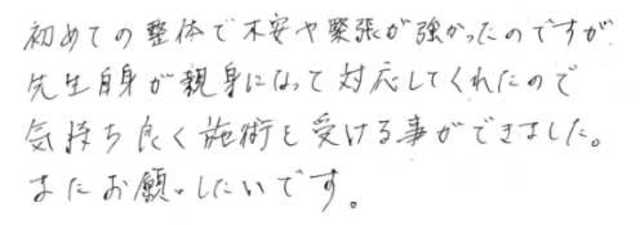 初めての整体で不安や緊張が強かったのですが
先生自身が親身になって対応してくれたので
気持ち良く施術を受ける事ができました。
またお願いしたいです。